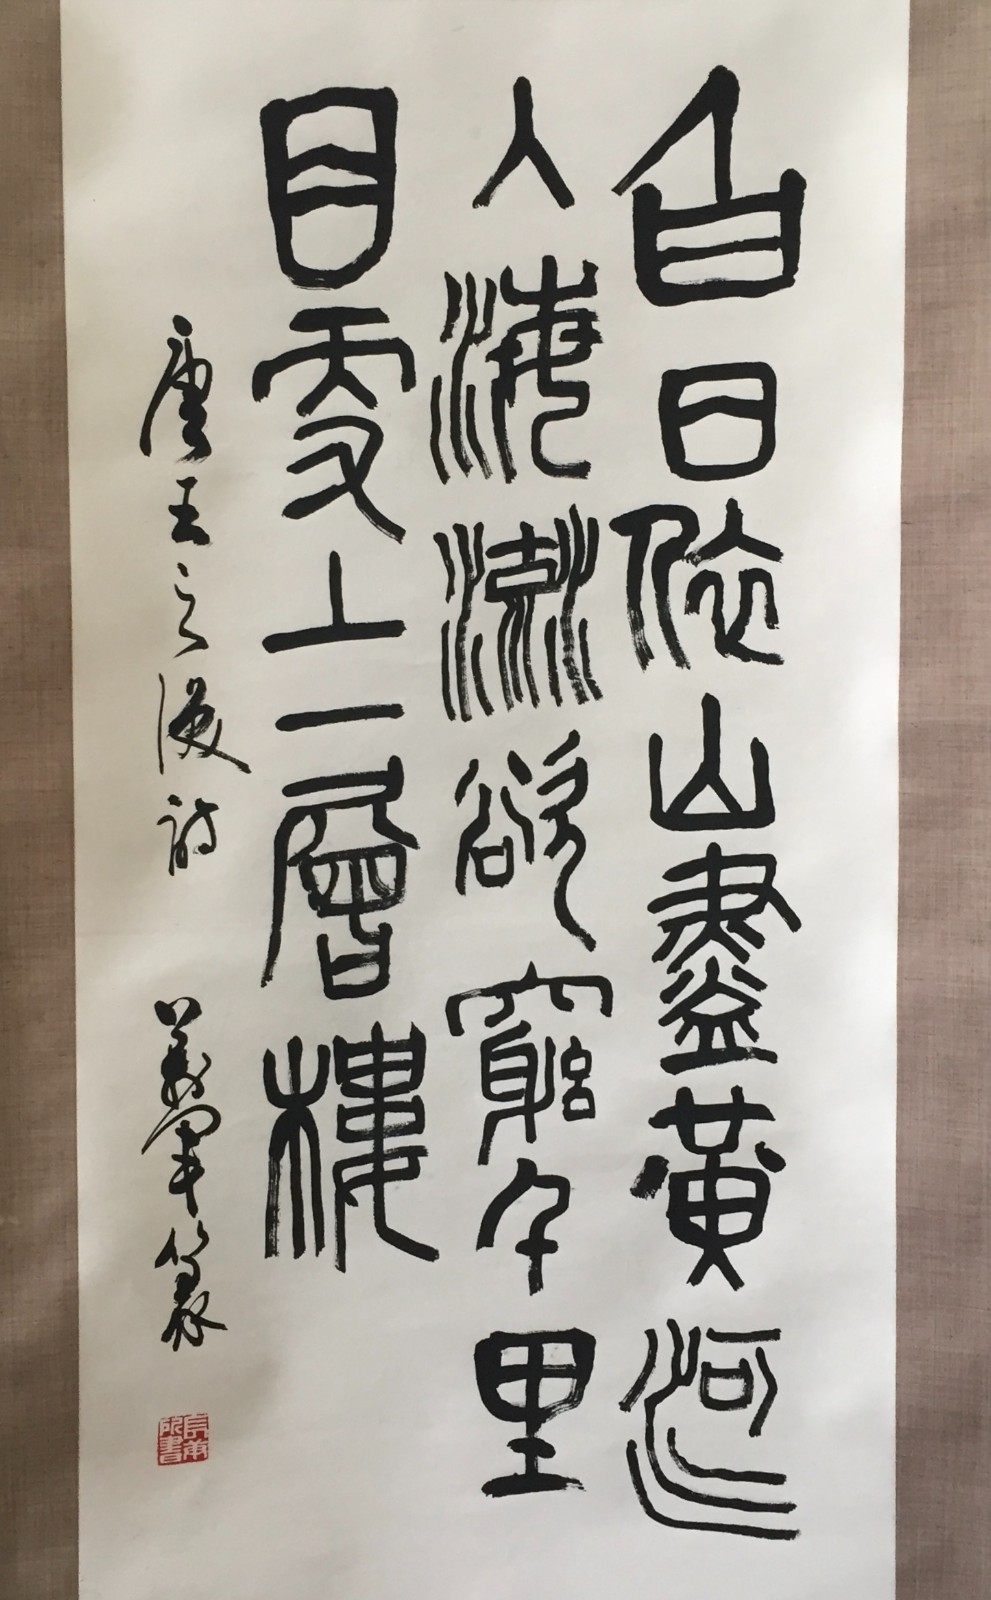 白日依山盡黃河
入海流欲窮千里
目更上一層樓
唐王之渙詩
篆